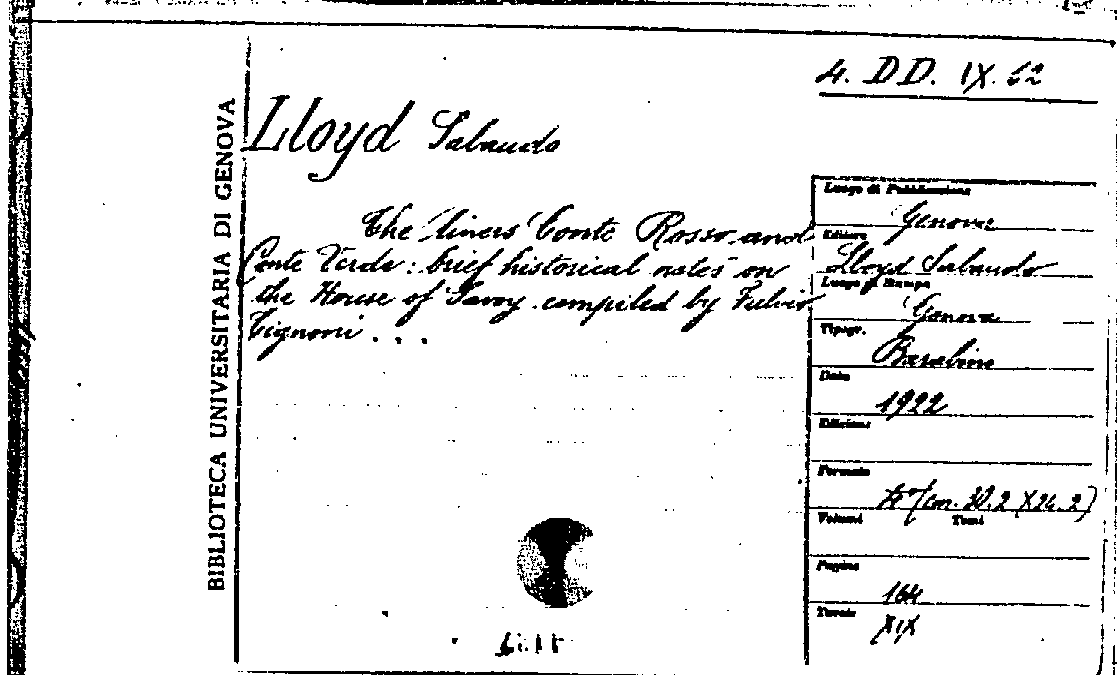 4. DD. IX. 62
BIBLIOTECA UNIVERSITARIA DI GENOVA
Lloyd Sabaudo
The liners Conte Rosso and
Conte Verde: brief historical notes on
the House of Savoy compiled by Fulvio
Cignoni ...
Luogo di Pubblicazione
Genova
Editore
Lloyd Sabaudo
Luogo di Stampa
Genova
Tipogr.
Barabino
Data
1922
Edizione
Formato
4° (cm. 32.2 X 24.2)
Volumi Tomi
Pagine
164
Tavole
XIX